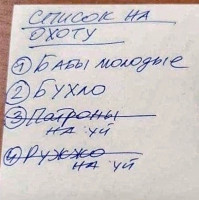 СПИСОК НА
ОХОТУ
1 БАБЫ МОЛОДЫЕ
2 БУХЛО
3 ПАТРОНЫ
НА УЙ
4 РУЖЖО
НА УЙ